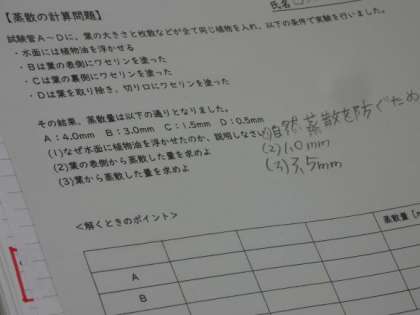 【蒸散の計算問題】
氏名
試験管A～Dに、葉の大きさと枚数などが全て同じ植物を入れ、以下の条件で実験を行いました。
・水面には植物油を浮かせる
・Bは葉の表側にワセリンを塗った
・Cは葉の裏側にワセリンを塗った
・Dは葉を取り除き、切り口にワセリンを塗った
その結果、蒸散量は以下の通りとなりました。
A：4.0mm　B：3.0mm　C：1.5mm　D：0.5mm
(1)なぜ水面に植物油を浮かせたのか、説明しなさい
(2)葉の表側から蒸散した量を求めよ
(3)葉から蒸散した量を求めよ
自然蒸散を防ぐため
(2)1.0mm
(3)3.5mm
＜解くときのポイント＞
蒸散量
A
B